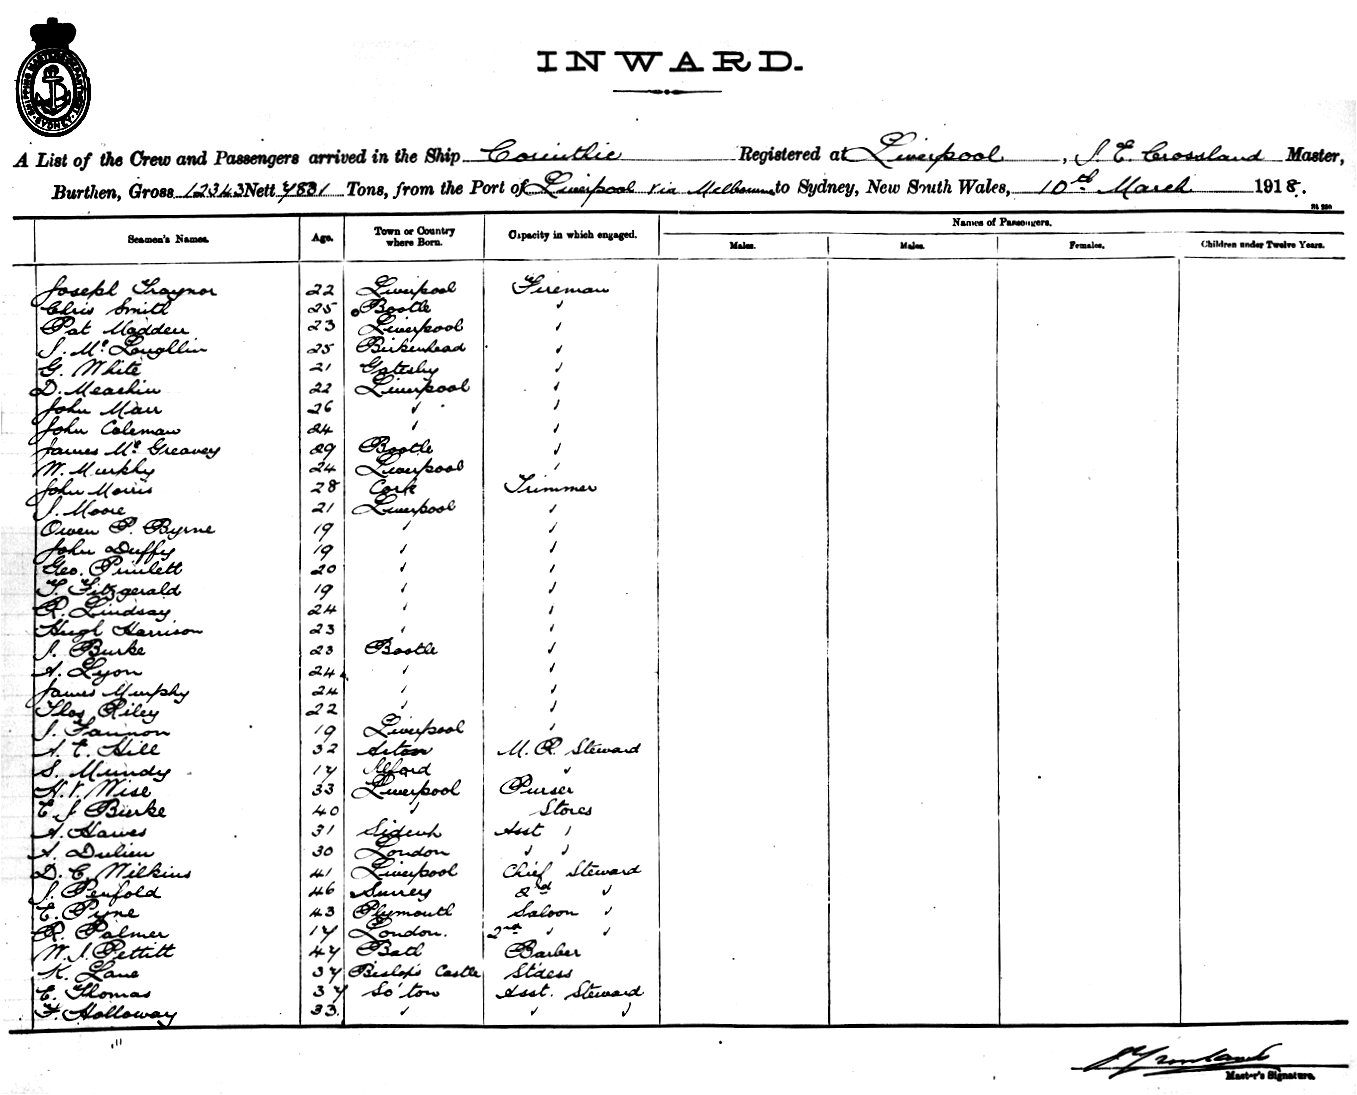 SHIPPING MASTER'S DEPARTMENT · SYDNEY ·
INWARD.
A List of the Crew and Passengers arrived in the Ship Corinthic Registered at Liverpool, J. E. Crossland Master,
Burthen, Gross 12343 Nett 7831 Tons, from the Port of Liverpool via Melbourne to Sydney, New South Wales, 10th March 1918.
Names of Passengers.
Seamen's Names. Age. Town or Country where Born. Capacity in which engaged. Males. Males. Females. Children under Twelve Years.
Joseph Traynor 22 Liverpool Fireman
Chris Smith 25 Bootle "
Pat Madden 23 Liverpool "
J. McLoughlin 25 Birkenhead "
G. White 21 "
D. Meachin 22 Liverpool "
John Marr 26 " "
John Coleman 24 " "
James McGreavey 29 Bootle "
W. Murphy 24 Liverpool "
John Morris 28 Cork Trimmer
J. Moore 21 Liverpool "
Owen P. Byrne 19 " "
John Duffy 19 " "
Geo. Pimlett 20 " "
T. Fitzgerald 19 " "
R. Lindsay 24 " "
Hugh Harrison 23 " "
J. Burke 23 Bootle "
A. Lyon 24 " "
James Murphy 24 " "
Thos Riley 22 " "
J. Fannon 19 Liverpool "
A. E. Hill 32 M. R. Steward
S. Mundy 17 Ilford "
H. V. Wise 33 Liverpool Purser
E. J. Burke 40 " Stores
A. Hawes 31 Asst "
A. Dulieu 30 London " "
D. C. Wilkins 41 Liverpool Chief Steward
J. Penfold 46 Surrey 2nd "
E. Pyne 43 Plymouth Saloon "
R. Palmer 17 London. 2nd " "
W. J. Pettitt 47 Bath Barber
K. Lane 37 Bishop's Castle St'dess
E. Thomas 37 So'ton Asst. Steward
F. Holloway 33. " " "
J. Crossland
Master's Signature.